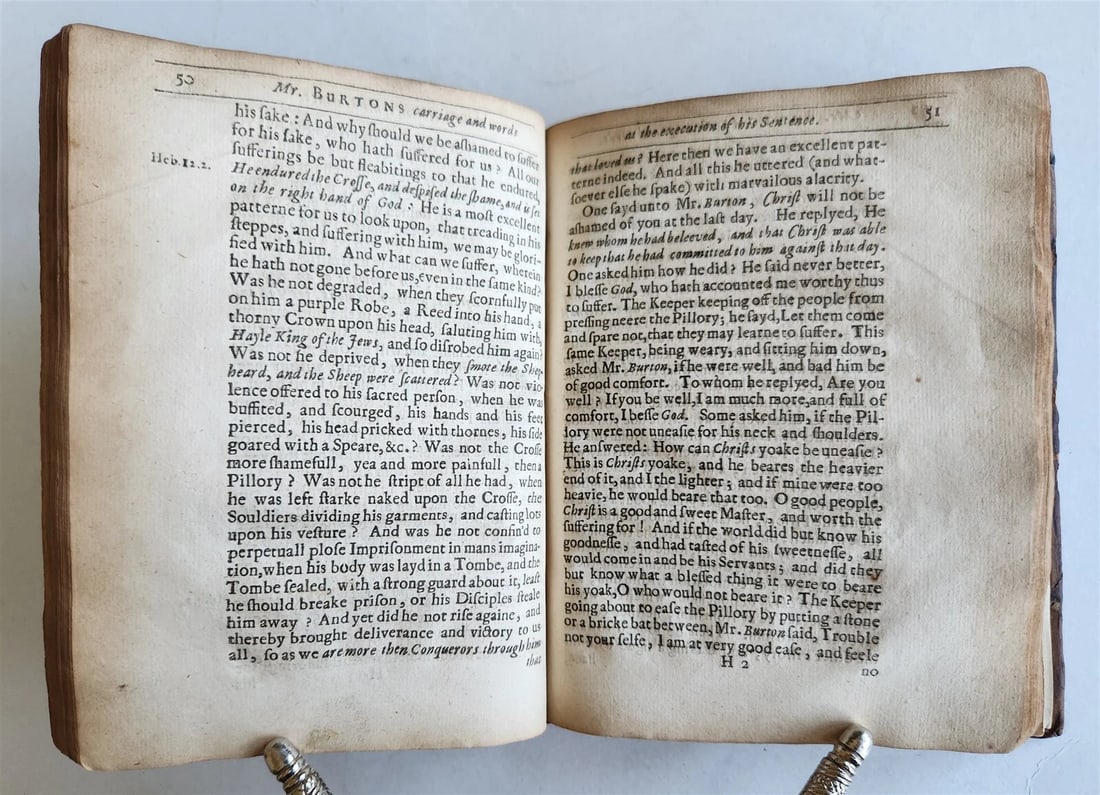 50
Mr. BURTONS carriage and words
his ſake : And why ſhould we be aſhamed to ſuffer
for his ſake, who hath ſuffered for us ? All our
ſufferings be but fleabitings to that he endured,
Heb.12.2.
He endured the Croſſe, and deſpiſed the ſhame, and is ſet
on the right hand of God : He is a moſt excellent
patterne for us to look upon, that treading in his
ſteppes, and ſuffering with him, we may be glori-
fied with him. And what can we ſuffer, wherein
he hath not gone before us, even in the same kind?
Was he not degraded, when they ſcornfully put
on him a purple Robe, a Reed into his hand, a
thorny Crown upon his head, ſaluting him with,
Hayle King of the Jews, and ſo diſrobed him again?
Was not he deprived, when they ſmote the Shep-
heard, and the Sheep were ſcattered? Was not vio-
lence offered to his ſacred perſon, when he was
buffited, and ſcourged, his hands and his feet
pierced, his head pricked with thornes, his ſide
goared with a Speare, &c.? Was not the Croſſe
more ſhamefull, yea and more painfull, then a
Pillory ? Was not he ſtript of all he had, when
he was left ſtarke naked upon the Croſſe, the
Souldiers dividing his garments, and caſting lots
upon his veſture ? And was he not confin'd to
perpetuall ploſe Impriſonment in mans imagina-
tion, when his body was layd in a Tombe, and the
Tombe ſealed, with a ſtrong guard about it, leaſt
he ſhould breake priſon, or his Diſciples ſteale
him away ? And yet did he not riſe againe, and
thereby brought deliverance and victory to us
all, ſo as we are more then Conquerors through him
that
at the execution of his Sentence.
51
that loved us? Here then we have an excellent pat-
terne indeed. And all this he uttered (and what-
ſoever elſe he ſpake) with marvailous alacrity.
One ſayd unto Mr. Burton, Chriſt will not be
aſhamed of you at the laſt day. He replyed, He
knew whom he had beleeved, and that Chriſt was able
to keep that he had committed to him againſt that day.
One asked him how he did? He ſaid never better,
I bleſſe God, who hath accounted me worthy thus
to ſuffer. The Keeper keeping off the people from
preſſing neere the Pillory; he ſayd, Let them come
and ſpare not, that they may learne to ſuffer. This
ſame Keeper, being weary, and ſitting him down,
asked Mr. Burton, if he were well, and bad him be
of good comfort. To whom he replyed, Are you
well ? If you be well, I am much more, and full of
comfort, I beſſe God. Some asked him, if the Pil-
lory were not uneaſie for his neck and ſhoulders.
He anſwered: How can Chriſts yoake be uneaſie ?
This is Chriſts yoake, and he beares the heavier
end of it, and I the lighter; and if mine were too
heavie, he would beare that too. O good people,
Chriſt is a good and ſweet Maſter, and worth the
ſuffering for ! And if the world did but know his
goodneſſe, and had taſted of his ſweetneſſe, all
would come in and be his Servants; and did they
but know what a bleſſed thing it were to beare
his yoak, O who would not beare it ? The Keeper
going about to eaſe the Pillory by putting a ſtone
or a bricke bat between, Mr. Burton ſaid, Trouble
not your ſelfe, I am at very good eaſe, and feele
H 2
no